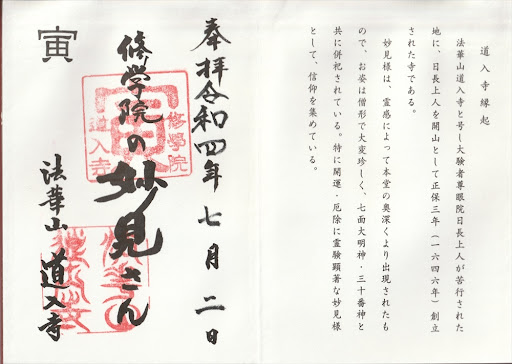 道入寺縁起
法華山道入寺と号し大験者尊眼院日長上人が苦行された
地に、日長上人を開山として正保三年(一六四六年)創立
された寺である。
妙見様は、霊感によって本堂の奥深くより出現されたも
ので、お姿は僧形で大変珍しく、七面大明神・三十番神と
共に併祀されている。特に開運・厄除に霊験顕著な妙見様
として、信仰を集めている。
奉拝令和四年七月二日
修學院の妙見さん
法華山 道入寺
寅
修學院
寅
道入寺